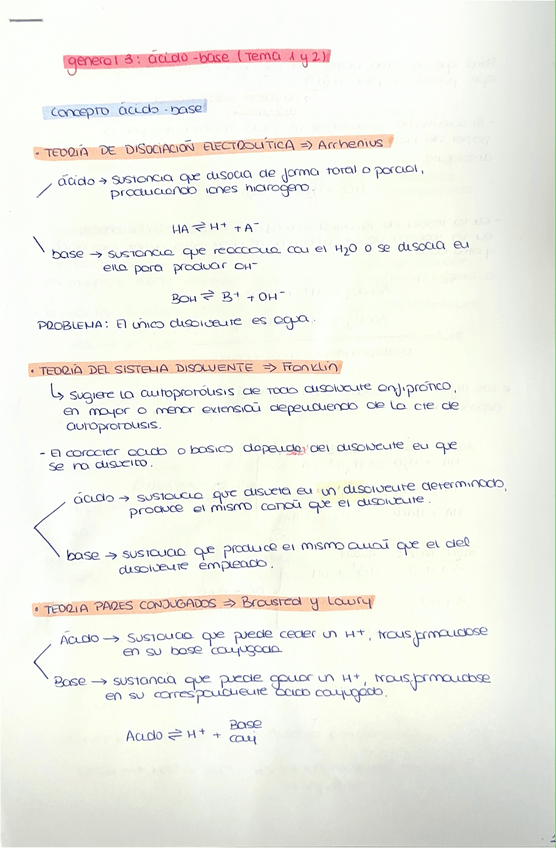 general 3: ácido-base (Tema 1 y 2)
concepto ácido-base
• TEORÍA DE DISOCIACIÓN ELECTROLÍTICA ⇒ Arrhenius
ácido → sustancia que disocia de forma total o parcial,
produciendo iones hidrógeno.
HA ⇌ H⁺ + A⁻
base → sustancia que reacciona con el H₂O o se disocia en
ella para producir OH⁻
BOH ⇌ B⁺ + OH⁻
PROBLEMA: El único disolvente es agua.
• TEORÍA DEL SISTEMA DISOLVENTE ⇒ Franklin
↳ sugiere la autoprotólisis de todo disolvente anfiprótico,
en mayor o menor extensión dependiendo de la cte de
autoprotólisis.
- El carácter ácido o básico depende del disolvente en que
se ha disuelto.
ácido → sustancia que disuelta en un disolvente determinado,
produce el mismo catión que el disolvente.
base → sustancia que produce el mismo anión que el del
disolvente empleado.
• TEORIA PARES CONJUGADOS ⇒ Brønsted y Lowry
Ácido → sustancia que puede ceder un H⁺, transformándose
en su base conjugada
Base → sustancia que puede ganar un H⁺, transformándose
en su correspondiente ácido conjugado.
Ácido ⇌ H⁺ + Base
conj